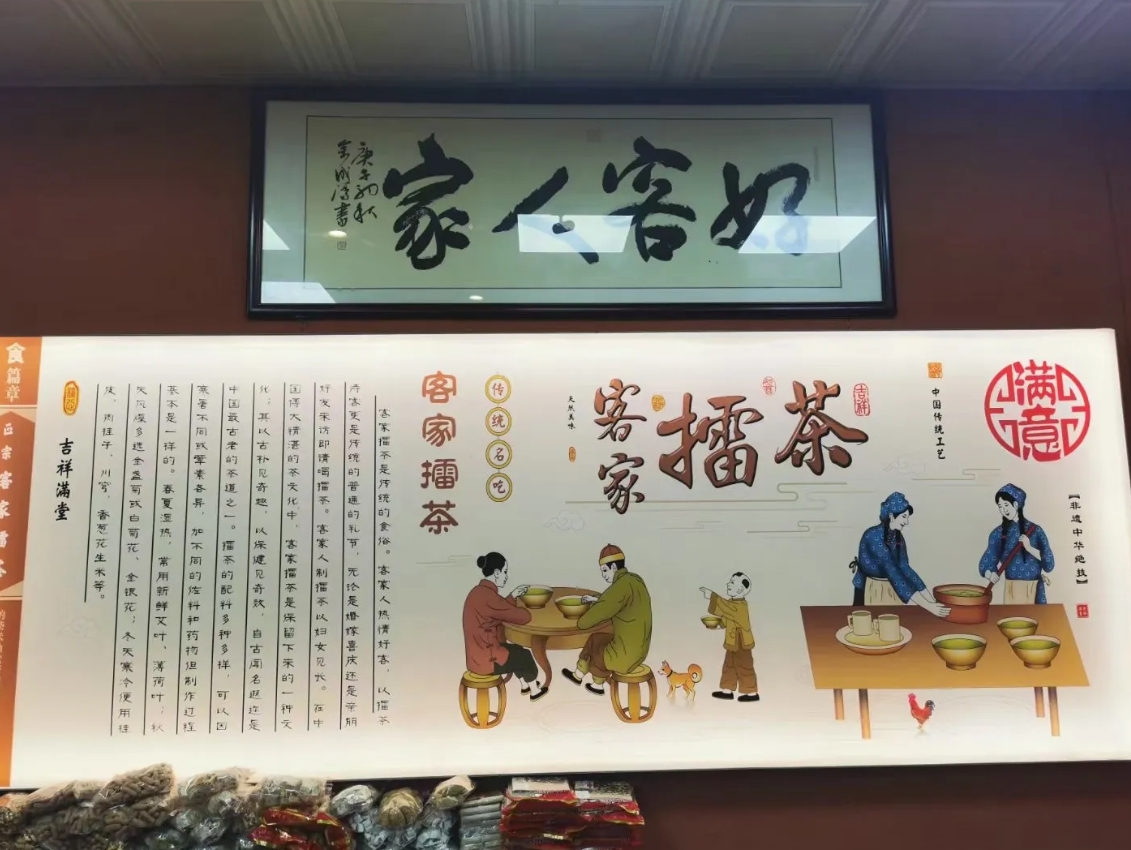 好客人家
满意
【非遗中华绝技】
中国传统工艺
吉祥
客家擂茶
天然美味
传统名吃
客家擂茶
客家擂茶是传统的食俗。客家人热情好客，以擂茶
待客更是传统的普通的礼节，无论是婚嫁喜庆还是亲朋
好友来访即请喝擂茶。客家人制擂茶以妇女见长。在中
国博大精湛的茶文化中，客家擂茶是保留下来的一种文
化；其以古朴见奇趣，以保健见奇效，自古闻名遐迩是
中国最古老的茶道之一。擂茶的配料多种多样，可以因
家着不同或荤素各异，加不同的佐料和药物但制作过程
基本是一样的。春夏湿热，常用新鲜艾叶、薄荷叶；秋
天风燥多选金盏菊或白菊花、金银花；冬天寒冷便用桂
皮、肉桂子、川穹、香葱花生米等。
吉祥满堂
食篇章
正宗客家擂茶